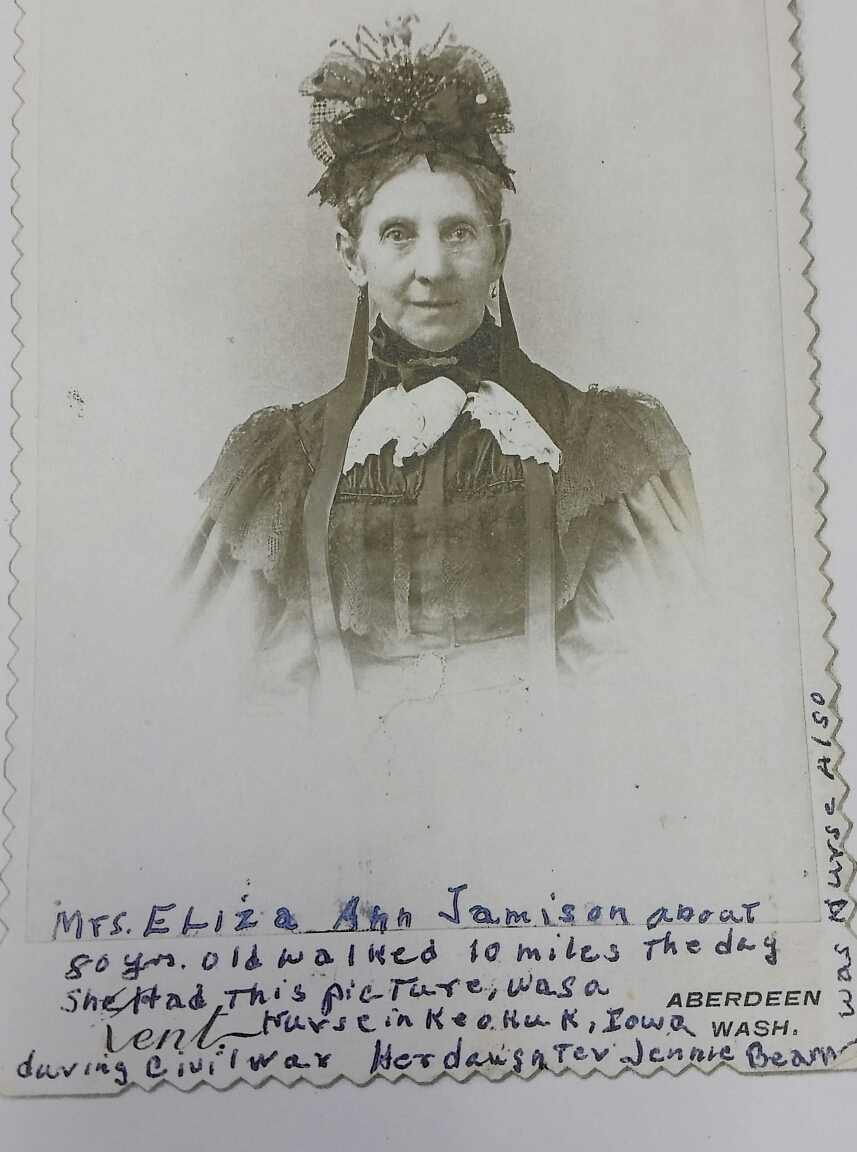 Mrs. ELiza Ann Jamison about
80 yrs. old walked 10 miles The day
She Had This picTure, was a
ABERDEEN
Nurse in KeoKuK, Iowa
WASH.
during Civil war Her daughTer Jennie Beam
was Nurse Also